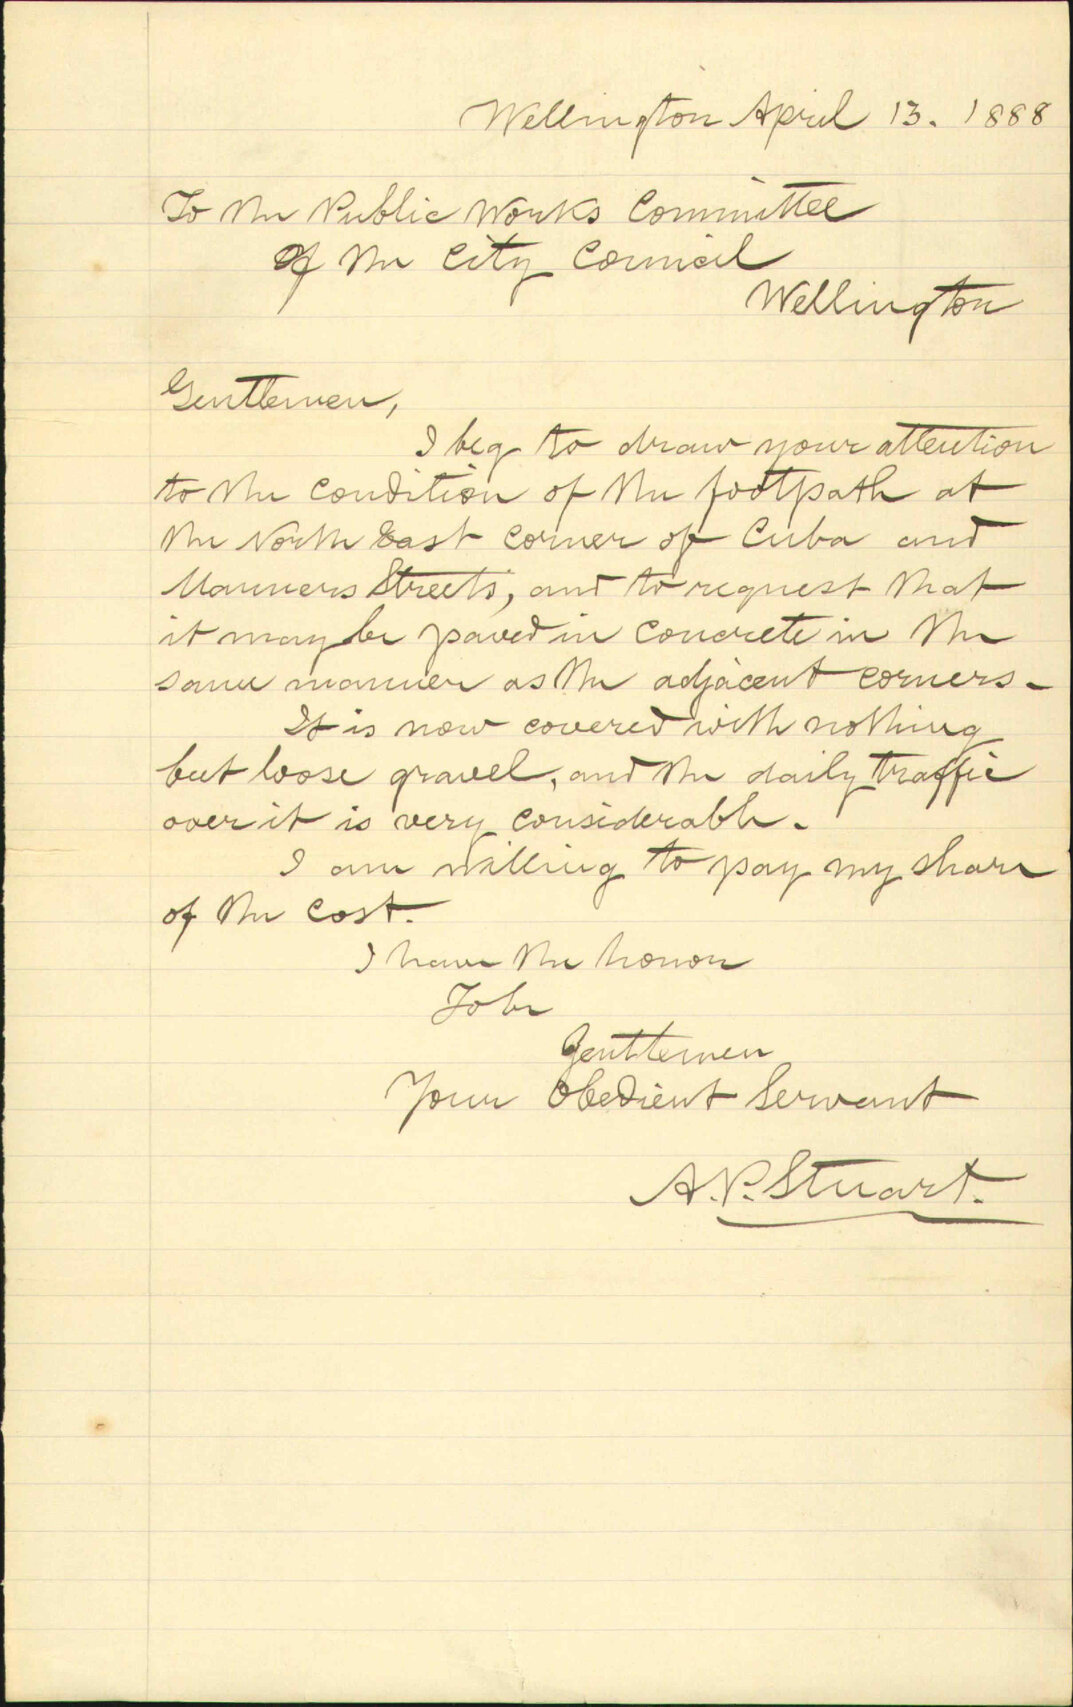 Wellington April 13. 1888
To the Public Works Committee
Of the City Council
Wellington
Gentlemen,
I beg to draw your attention
to the condition of the footpath at
the North East corner of Cuba and
Manners Streets, and to request that
it may be paved in concrete in the
same manner as the adjacent corners.
It is now covered with nothing
but loose gravel, and the daily traffic
over it is very considerable.
I am willing to pay my share
of the cost.
I have the honor
To be
Gentlemen
Your Obedient Servant
A.P. Stuart.